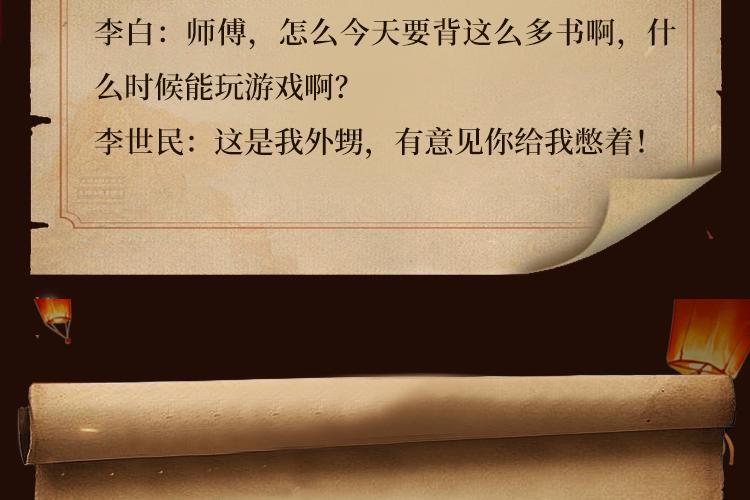 李白：师傅，怎么今天要背这么多书啊，什
么时候能玩游戏啊？
李世民：这是我外甥，有意见你给我憋着！